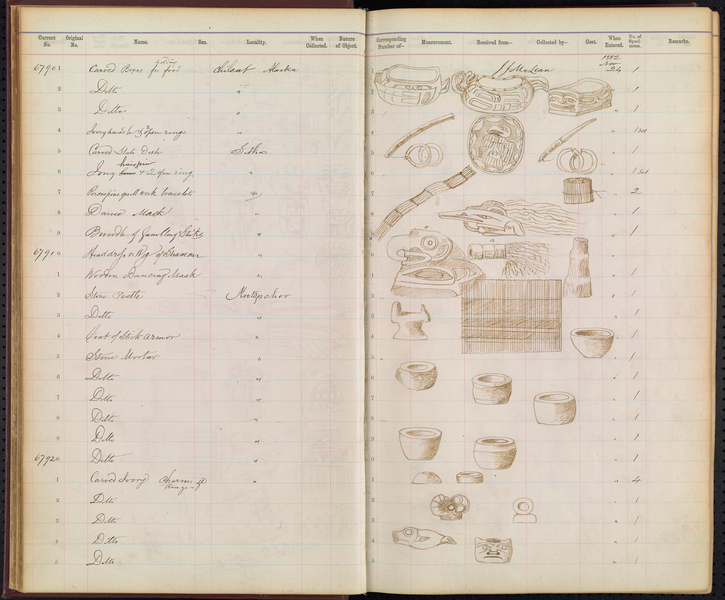 Current No. Original No. Name. Sex. Locality. When Collected. Nature of Object. Corresponding Number of— Measurement. Received from— Collected by— Cost. When Entered. No. of Specimens. Remarks.
67901 Carved Boxes for food Chilcat Alaska J J McLean 1882 Nov 24 1
2 Ditto " " 1
3 Ditto " " 1
4 " " 1 set
5 Carved Slate Dish Sitka " 1
6 Ivory hairpin + 2 open rings " " 1 set
7 Porcupine quill work bracelets " " 2
8 Dance Mask " " 1
9 Bundle of Gambling Sticks " " 1
67910 Headdress or Wig of Shaman " " 1
1 Wooden Dancing Mask " " 1
2 Stone Pestle " 1
3 Ditto " " 1
4 Coat of Stick armor " " 1
5 Stone Mortar " " 1
6 Ditto " " 1
7 Ditto " " 1
8 Ditto " " 1
9 Ditto " " 1
67920 Ditto " " 1
1 Carved Ivory " " 4
2 Ditto " 1
3 Ditto " 1
4 Ditto " 1
5 Ditto " 1